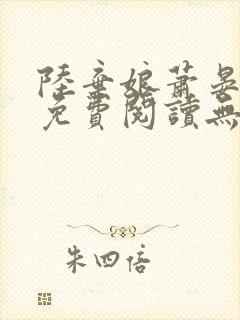 陸棄娘蕭晏
免費閱讀無
朱四倍